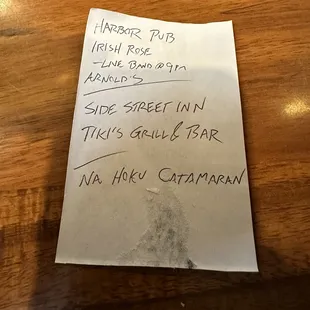 HARBOR PUB
IRISH ROSE
- LIVE BAND @ 9PM
ARNOLD'S
SIDE STREET INN
TIKI'S GRILL & BAR
NA HOKU CATAMARAN